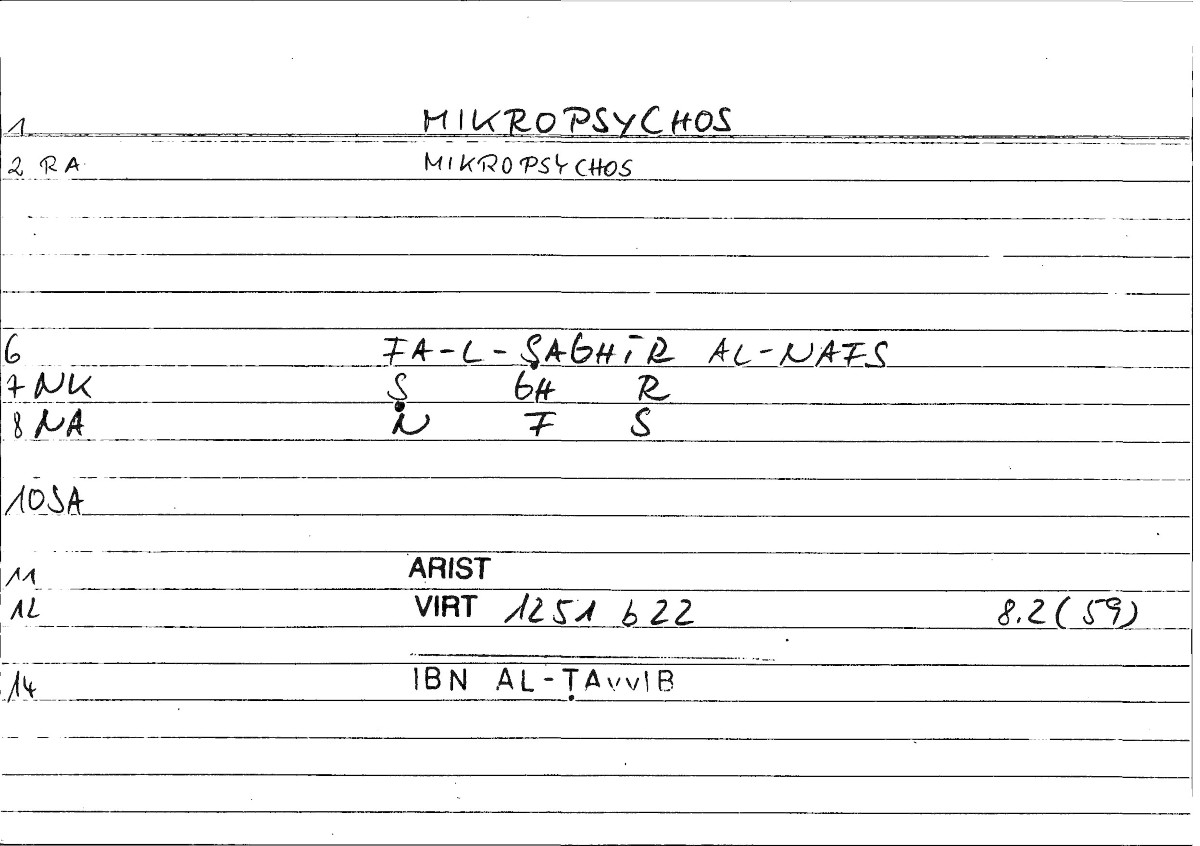 1 MIKROPSYCHOS
2 RA MIKROPSYCHOS
6 FA-L-ṢAGHĪR AL-NAFS
7 NK Ṣ GH R
8 NA N F S
10 SA
11 ARIST
12 VIRT 1251 b 22 8.2 (59)
14 IBN AL-ṬAYYIB